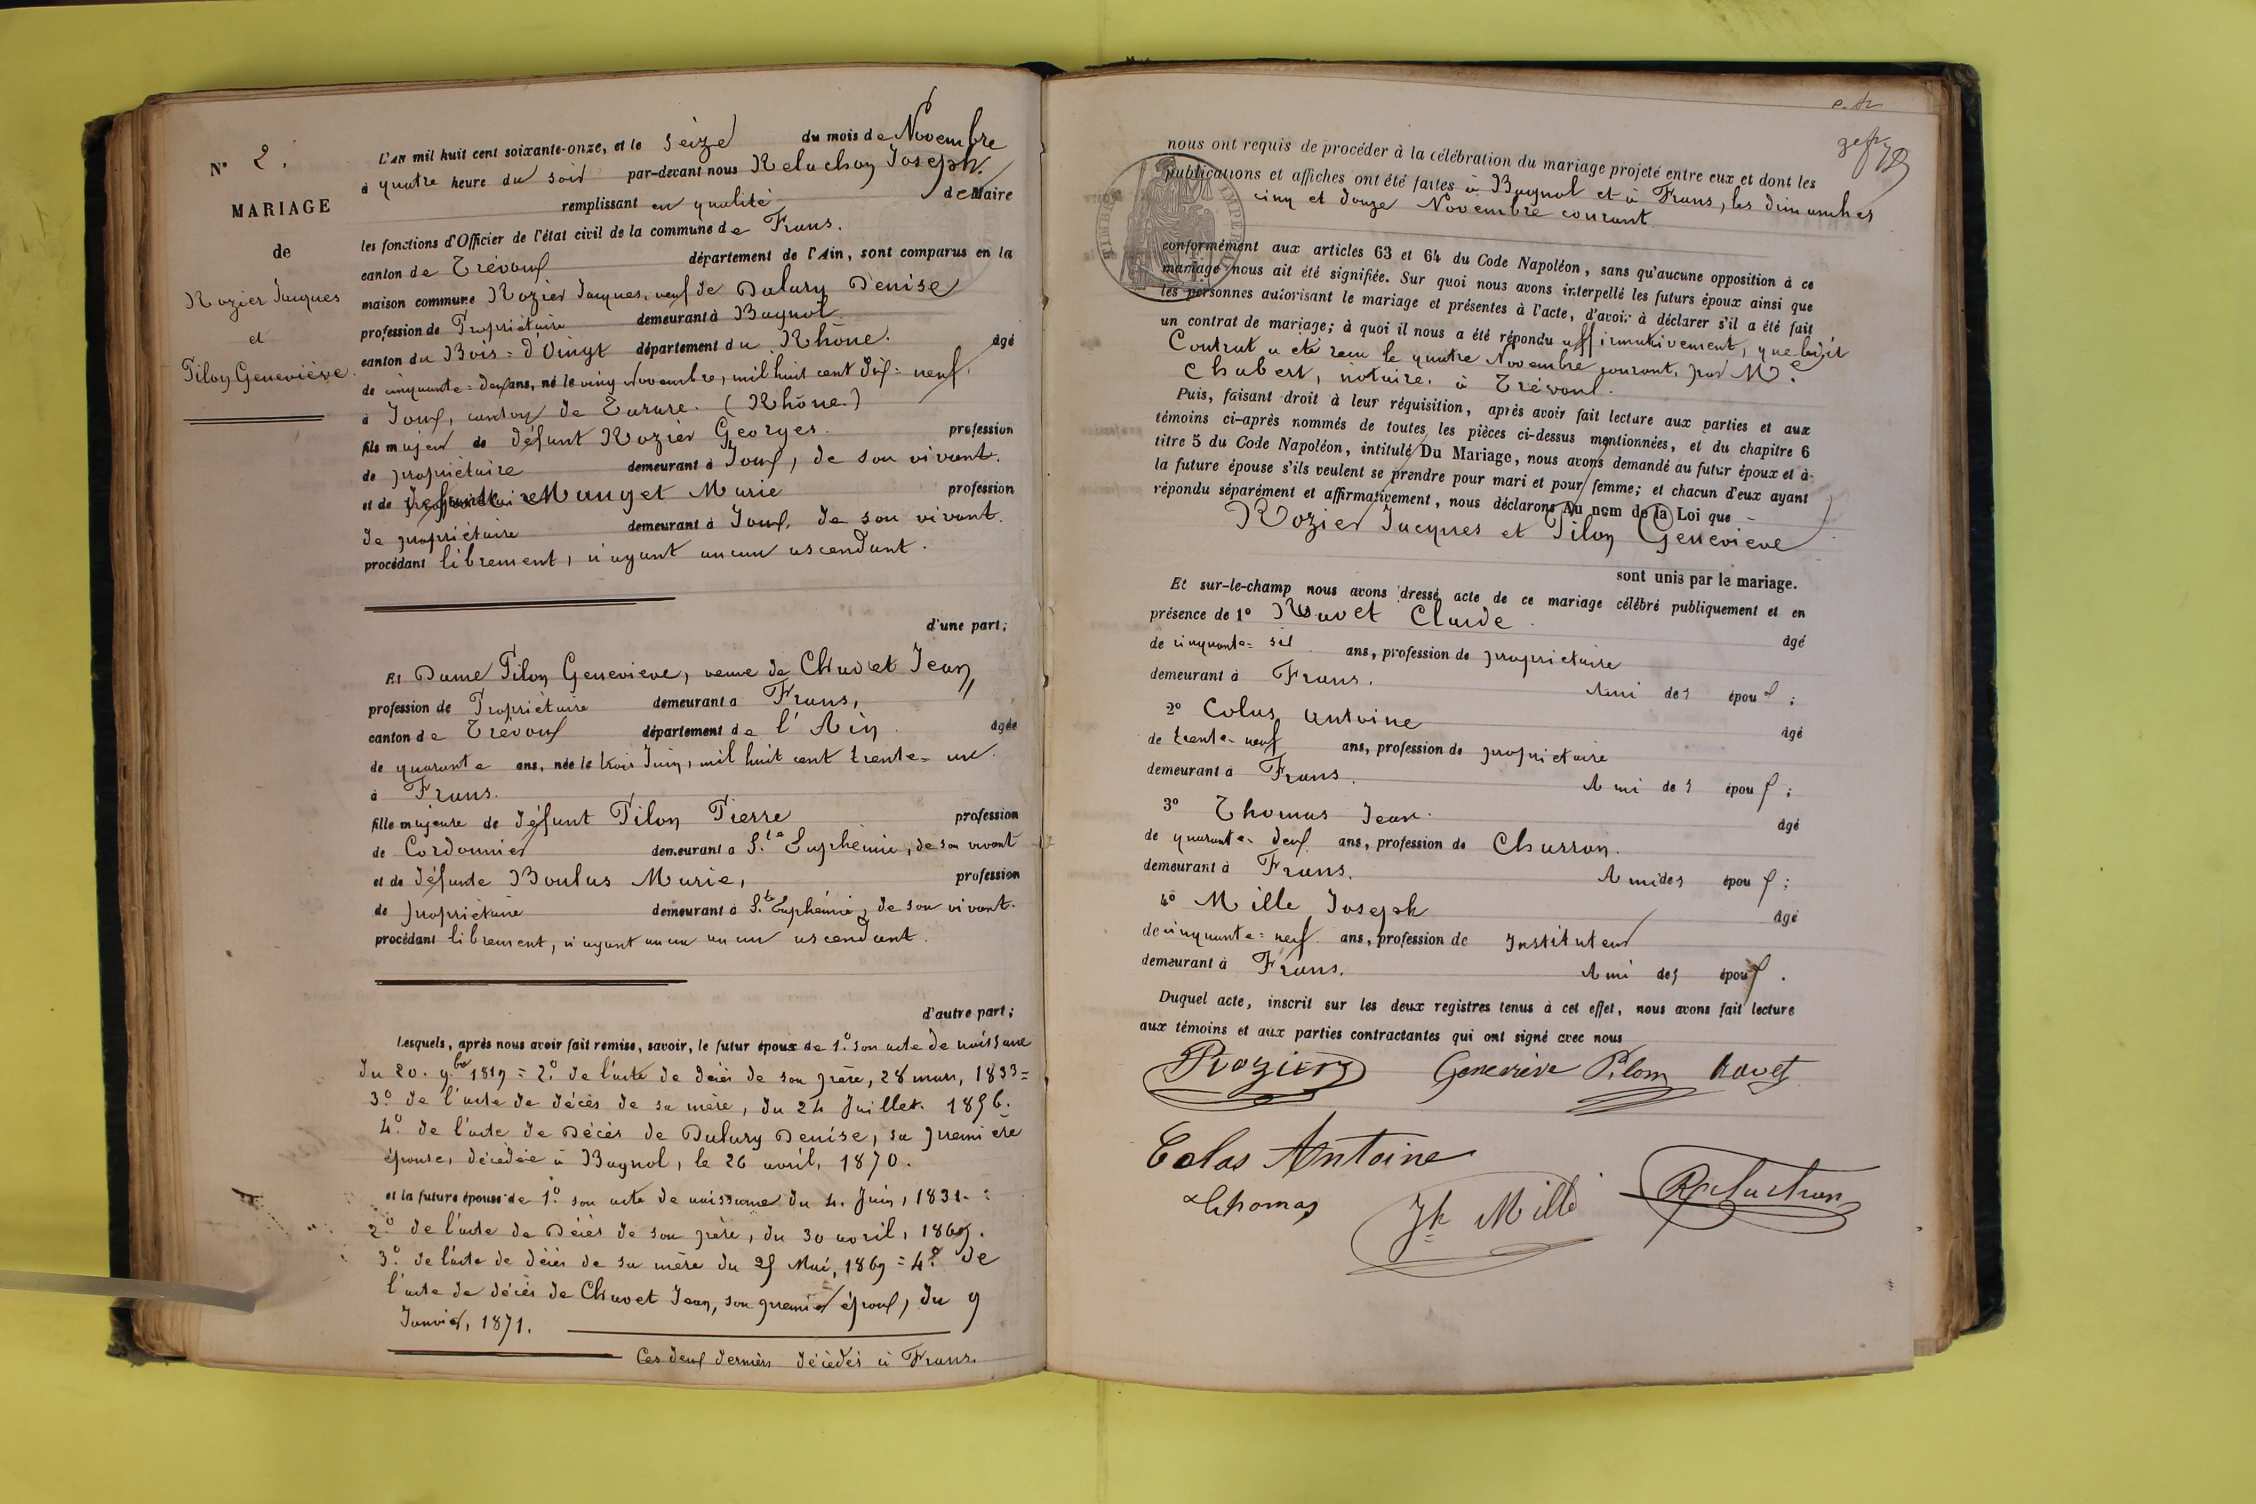 N° 2.
MARIAGE
de
Rozier Jacques
et
Pilon Geneviève.
L'AN mil huit cent soixante-onze, et le seize du mois de Novembre
à quatre heure du soir par-devant nous Reluchon Joseph.
remplissant en qualité de Maire
les fonctions d'Officier de l'état civil de la commune de Frans.
canton de Trévoux département de l'Ain, sont comparus en la
maison commune Rozier Jacques, veuf de Dalury Denise
profession de Propriétaire demeurant à Bagnol.
canton du Bois-d'Oingt département du Rhône. âgé
de cinquante-deux ans, né le ving Novembre, mil huit cent dix-neuf,
à Joux, canton de Tarare. (Rhône.)
fils majeur de défunt Rozier Georges. profession
de propriétaire demeurant à Joux, de son vivant.
et de défunte Mauget Marie profession
de propriétaire demeurant à Joux, de son vivant.
procédant librement, n'ayant aucun ascendant.
d'une part;
Et Dame Pilon Geneviève, veuve de Chavet Jean,
profession de Propriétaire demeurant à Frans,
canton de Trévoux département de l'Ain. âgée
de quarante ans, née le trois Juin, mil huit cent trente-un.
à Frans.
fille majeure de défunt Pilon Pierre profession
de Cordonnier demeurant à Ste Euphémie, de son vivant
et de défunte Boulas Marie, profession
de propriétaire demeurant à Ste Euphémie, de son vivant.
procédant librement, n'ayant aucun ascendant.
d'autre part;
Lesquels, après nous avoir fait remise, savoir, le futur époux de 1° son acte de naissance
du 20. 9bre 1819 = 2° de l'acte de décès de son père, 28 mars, 1833 =
3° de l'acte de décès de sa mère, du 24 Juillet. 1856.
4° de l'acte de Décès de Dalury Denise, sa première
épouse, décédée à Bagnol, le 26 avril, 1870.
et la future épouse de 1° son acte de naissance du 4. Juin, 1831. :
2° de l'acte de Décès de son père, du 30 avril, 1869.
3° de l'acte de décès de sa mère du 25 Mai, 1869 = 4° de
l'acte de décès de Chavet Jean, son premier époux, du 9
Janvier, 1871.
Ces deux derniers décédés à Frans.
nous ont requis de procéder à la célébration du mariage projeté entre eux et dont les
publications et affiches ont été faites à Bagnol et à Frans, les dimanches
cinq et douze Novembre courant.
conformément aux articles 63 et 64 du Code Napoléon, sans qu'aucune opposition à ce
mariage nous ait été signifiée. Sur quoi nous avons interpellé les futurs époux ainsi que
les personnes autorisant le mariage et présentes à l'acte, d'avoir à déclarer s'il a été fait
un contrat de mariage; à quoi il nous a été répondu affirmativement, que ledit
Contrat a été recu le quatre Novembre courant, par Me
Chabert, notaire, à Trévoux.
Puis, faisant droit à leur réquisition, après avoir fait lecture aux parties et aux
témoins ci-après nommés de toutes les pièces ci-dessus mentionnées, et du chapitre 6
titre 5 du Code Napoléon, intitulé Du Mariage, nous avons demandé au futur époux et à
la future épouse s'ils veulent se prendre pour mari et pour femme; et chacun d'eux ayant
répondu séparément et affirmativement, nous déclarons Au nom de la Loi que
Rozier Jacques et Pilon Geneviève
sont unis par le mariage.
Et sur-le-champ nous avons dressé acte de ce mariage célébré publiquement et en
présence de 1° Ravet Claude. âgé
de cinquante-six ans, profession de propriétaire
demeurant à Frans. Ami des époux;
2° Colas Antoine âgé
de trente-neuf ans, profession de propriétaire
demeurant à Frans. Ami des époux;
3° Thomas Jean. âgé
de quarante-deux ans, profession de Charron.
demeurant à Frans. Ami des époux;
4° Mille Joseph âgé
de cinquante-neuf ans, profession de Instituteur
demeurant à Frans. Ami des époux.
Duquel acte, inscrit sur les deux registres tenus à cet effet, nous avons fait lecture
aux témoins et aux parties contractantes qui ont signé avec nous
Rozier Geneviève Pilon Ravet
Colas Antoine
Thomas Jh Mille Reluchon